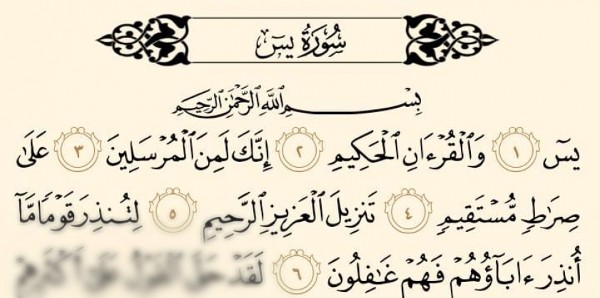 سُورَةُ يسٓ
بِسْمِ ٱللَّهِ ٱلرَّحْمَٰنِ ٱلرَّحِيمِ
يسٓ ١ وَٱلْقُرْءَانِ ٱلْحَكِيمِ ٢ إِنَّكَ لَمِنَ ٱلْمُرْسَلِينَ ٣ عَلَىٰ
صِرَٰطٍ مُّسْتَقِيمٍ ٤ تَنزِيلَ ٱلْعَزِيزِ ٱلرَّحِيمِ ٥ لِتُنذِرَ قَوْمًا مَّآ
أُنذِرَ ءَابَآؤُهُمْ فَهُمْ غَٰفِلُونَ ٦ لَقَدْ حَقَّ